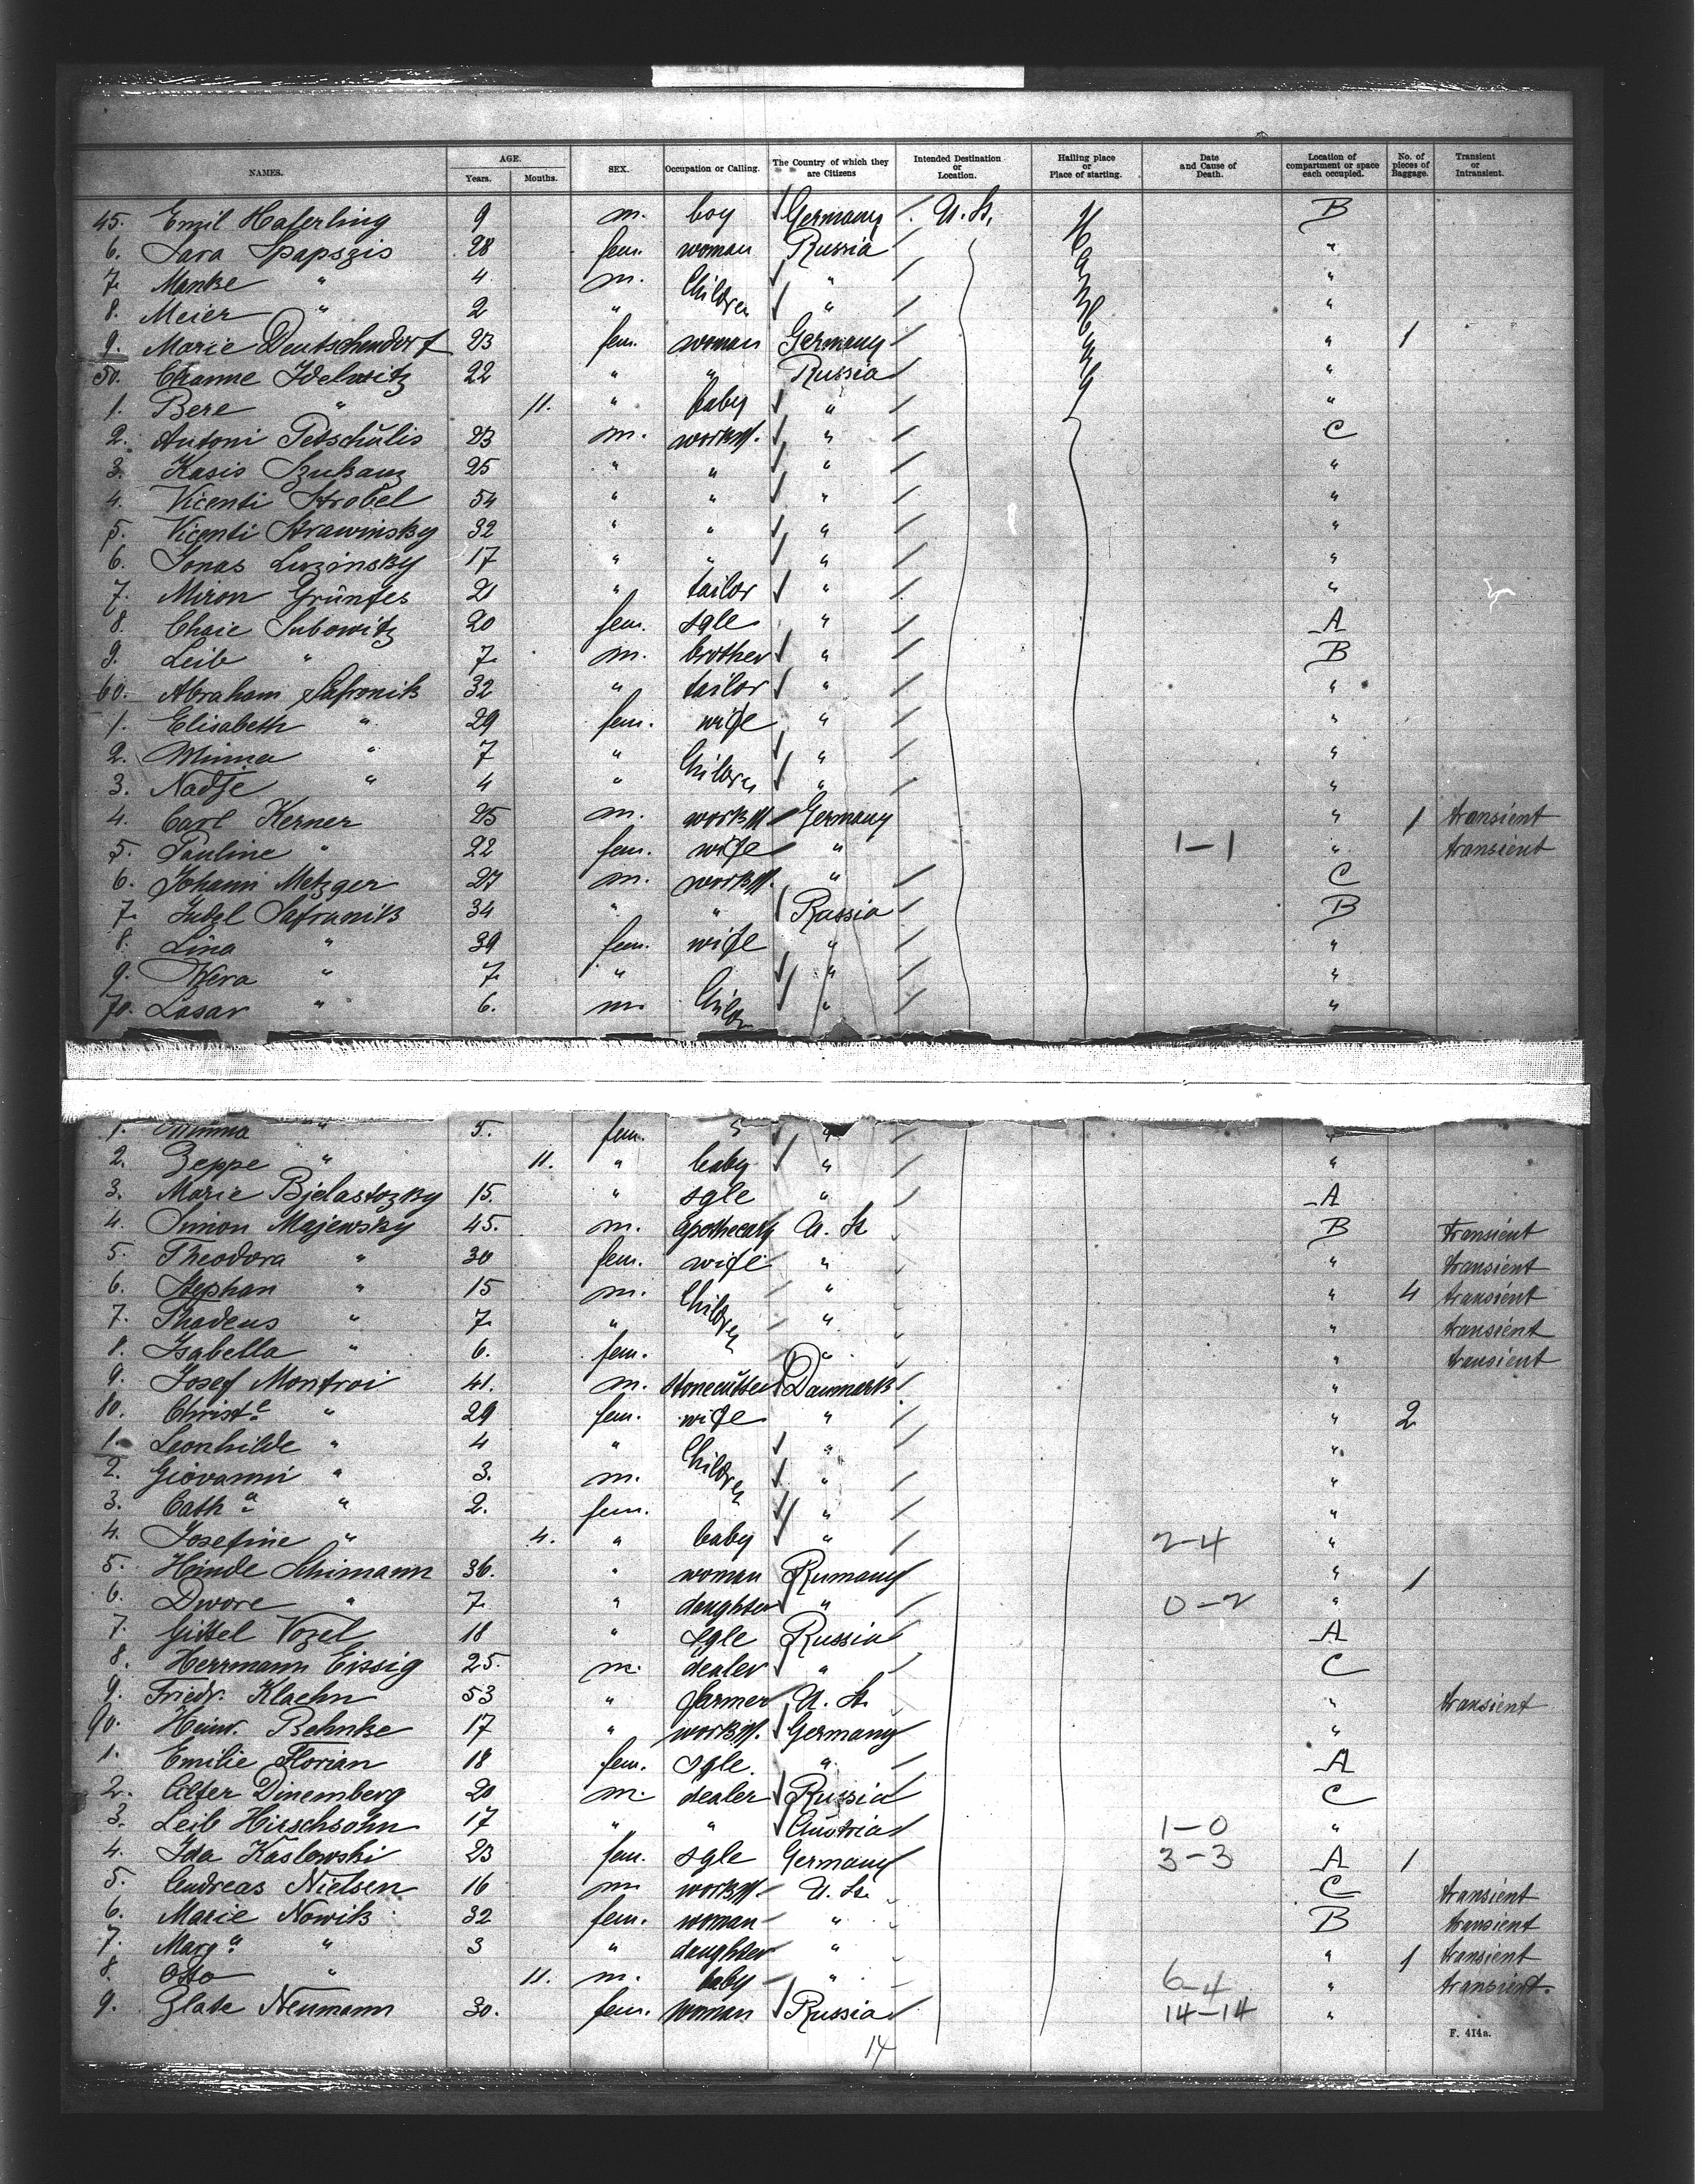 NAMES. AGE. Years. Months. SEX. Occupation or Calling. The Country of which they are Citizens Intended Destination or Location. Hailing place or Place of starting. Date and Cause of Death. Location of compartment or space each occupied. No. of pieces of Baggage. Transient or Intransient.
45. Emil Haferling 9 m. boy Germany U. St. Hamburg B
6. Sara Spapszis 28 fem. woman Russia "
7. Manke " 4 m. Children " "
8. Meier " 2 " " "
9. Marie Deutschendorf 23 fem. woman Germany " 1
50. Channe Idelowitz 22 " " Russia "
1. Bere " 11. " baby " "
2. Antoni Petschulis 23 m. workm. " C
3. Kasis Szukanz 25 " " " "
4. Vicenti Strobel 54 " " " "
5. Vicenti Strawinsky 32 " " " "
6. Jonas Luzinsky 17 " " " "
7. Miron Grünfes 21 " tailor " "
8. Chaie Subowitz 20 fem. sgle " A
9. Leib " 7. m. brother " B
60. Abraham Safronik 32 " tailor " "
1. Elisabeth " 29 fem. wife " "
2. Minna " 7 " Children " "
3. Nadje " 4 " " "
4. Carl Kerner 25 m. workm. Germany " 1 transient
5. Pauline " 22 fem. wife " 1-1 " transient
6. Johann Metzger 27 m. workm. " C
7. Judel Safranik 34 " " Russia B
8. Lina " 39 fem. wife " "
9. Wera " 7. " " "
70. Lasar " 6. m. Childr " "
1. Minna " 5. fem. " " "
2. Beppe " 11. " baby " "
3. Marie Bjelastozky 15. " sgle " A
4. Simon Majewsky 45. m. apothecary U. St B transient
5. Theodora " 30 fem. wife " " transient
6. Stephan " 15 m. Children " " 4 transient
7. Thadeus " 7. " " " transient
8. Isabella " 6. fem. " " transient
9. Josef Montroi 41. m. stonecutter Danmark "
80. Christe " 29 fem. wife " " 2
1. Leonhilde " 4 " Children " "
2. Giovanni " 3. m. " "
3. Catha " 2. fem. " "
4. Josefine " 4. " baby " 2-4 "
5. Heinde Schimann 36. " woman Rumany " 1
6. Dwore " 7. " daughter " 0-2 "
7. Gittel Vozel 18 " sgle Russia A
8. Herrmann Eissig 25. m. dealer " C
9. Friedr. Klaehn 53 " farmer U. St. " transient
90. Heinr. Behnke 17 " workm. Germany "
1. Emilie Florian 18 fem. sgle. " A
2. Alter Dinemberg 20 m. dealer Russia C
3. Leib Hirschsohn 17 " " Austria 1-0 "
4. Ida Kaslowski 23 fem. sgle Germany 3-3 A 1
5. Andreas Nielsen 16 m workm. U. St. C transient
6. Marie Nowik 32 fem. woman " B transient
7. Marga " 3 " daughter " " 1 transient
8. Otto " 11. m. baby " 6-4 " transient.
9. Zlate Neumann 30. fem. woman Russia 14-14 "
F. 414a.
14